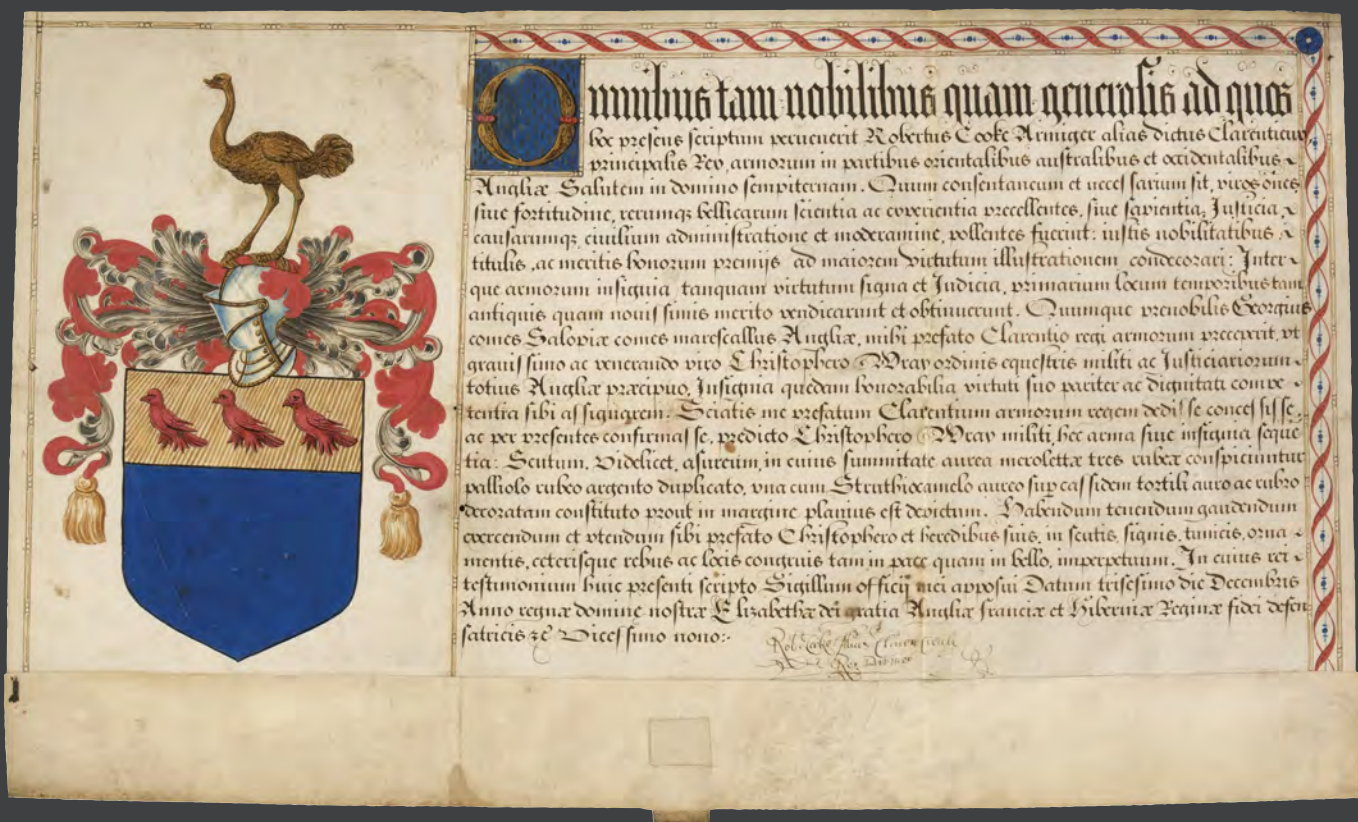 Omnibus tam nobilibus quam generosis ad quos
hoc presens scriptum pervenerit Robertus Cooke Armiger alias dictus Clarenticus
principalis Rex, armorum in partibus orientalibus australibus et occidentalibus
Angliæ Salutem in domino sempiternam. Quum consentaneum et necessarium sit, viros oñes
siue fortitudine, rerumq; bellicarum scientia ac experientia precellentes, siue sapientia, Justicia,
causarumq; ciuilium administratione et moderamine, pollentes fuerint: iustis nobilitatibus,
titulis, ac meritis honorum premijs ad maiorem virtutum illustrationem condecorari: Inter-
que armorum insignia tanquam virtutum signa et Judicia, primarium locum temporibus tam
antiquis quam nouissimis merito vendicarunt et obtinuerunt. Quumque prenobilis Georgius
comes Salopiæ comes marescallus Angliæ, mihi prefato Clarentio regi armorum preceperit, vt
grauissimo ac venerando viro Christophero Wray ordinis equestris militi ac Justiciariorum
totius Angliæ præcipuo, Insignia quedam honorabilia virtuti suo pariter ac dignitati compe-
tentia sibi assignarem: Sciatis me prefatum Clarentium armorum regem dedisse concessisse,
ac per presentes confirmasse, predicto Christophero Wray militi, hec arma siue insignia seque
tia: Scutum, Videlicet, asureum, in cuius summitate aurea merolettæ tres rubeæ conspiciuntur
palliolo rubeo argento duplicato, vna cum Struthiocamelo aureo sup cassidem tortili auro ac rubro
decoratam constituto prout in margine planius est depictum. Habendum tenendum gaudendum
exercendum et vtendum sibi prefato Christophero et heredibus suis, in scutis, signis, tunicis, orna-
mentis, ceterisque rebus ac locis congruis tam in pace quam in bello, imperpetuum. In cuius rei
testimonium huic presenti scripto Sigillum officij mei apposui Datum trisesimo die Decembris
Anno regnæ domine nostræ Elizabethæ dei gratia Angliæ franciæ et Hiberniæ Reginæ fidei defen
satricis &c Vicessimo nono:
Rob Cooke Alias Clarencieulx
Roy Darmes